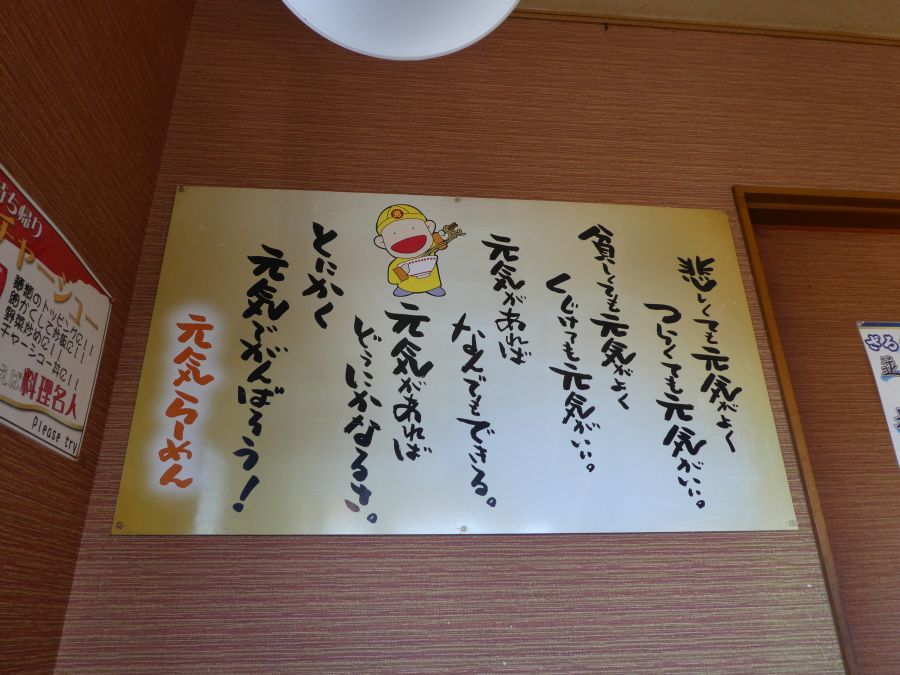 悲しくても元気がよく
つらくても元気がいい。
貧しくても元気がよく
くじけても元気がいい。
元気があれば
なんでもできる。
元気があれば
どうにかなるさ。
とにかく
元気でがんばろう！
元気らーめん
元
持ち帰り
チャーシュー
麺類のトッピングに!!
細かくして炒飯に!!
野菜炒めに!!
チャーシュー丼に!!
えば料理名人
please try
ざる